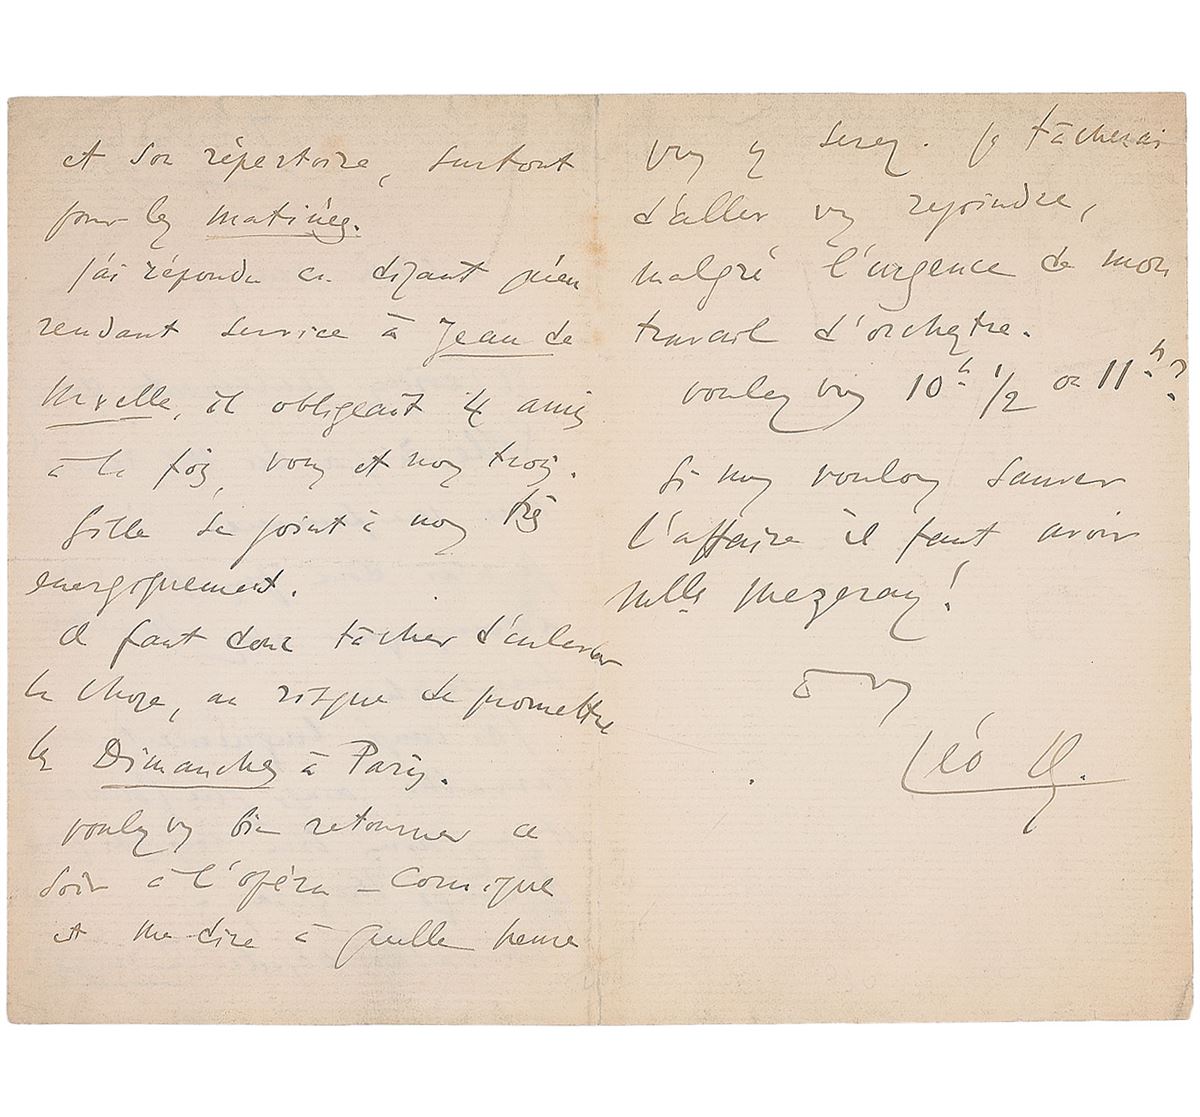 et son répertoire, surtout
pour les matinées.
J'ai répondu en disant qu'en
rendant service à Jean de
Nivelle, il obligeait 4 amis
à la fois, vous et nous trois.
Gille se joint à nous très
energiquement.
il faut donc tâcher d'enlever
la chose, au risque de promettre
les Dimanches à Paris.
voulez vous bien retourner ce
soir à l'opéra-Comique
et me dire à quelle heure
vous y serez. je tâcherai
d'aller vous rejoindre,
malgré l'urgence de mon
travail d'orchestre.
voulez vous 10h 1/2 ou 11h?
Si nous voulons sauver
l'affaire il faut avoir
Mlle Mezeray!
à vous
Léo D.